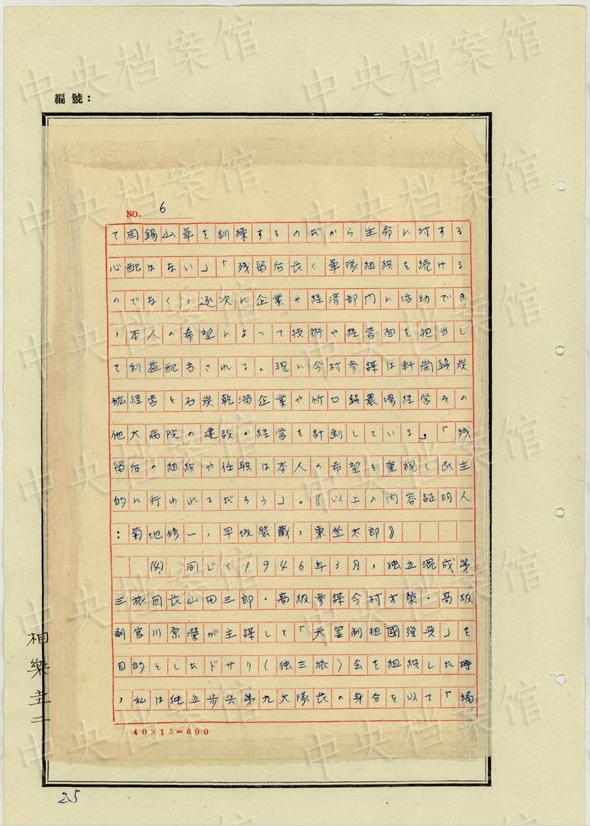 編號：
NO. 6
て閻錫山軍を訓練するのだから生命に対する
心配はない」「残留后長く軍隊組織を続ける
のでなく，逐次に企業や経済部門に活動でき
，本人の希望によって技術や経営面を担当し
て利益配当される。現に今村参謀は軒崗鎮炭
砿経営と石炭乾溜企業や竹口鎮農場経営その
他大病院の建設・経営を計劃している」「残
留后の組織や任職は本人の希望を重視し民主
的に行われるだろう」。《以上の内容証明人
：菊地修一，平坂 ，東登太郎》
(4) 同じく1946年3月，独立混成第
三旅団長山田三郎・高級参謀今村方策・高級
副官川原榮が主謀して「天皇制祖國復興」を
目的としたドサリ（独三旅）会を組織した時
，私は独立歩兵第九大隊長の身分を以て「
40×15=600
相樂圭二
25
中央档案馆